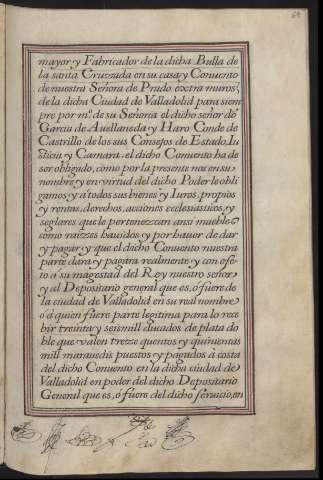 69
mayor y Fabricador de la dicha Bulla de
la santa Cruzada en su casa y Convento
de nuestra Señora de Prado extra muros
de la dicha Ciudad de Valladolid para siem
pre por mº. de su Señoria el dicho señor dº
Garcia de Auellaneda y Haro Conde de
Castrillo de los sus Consejos de Estado, Iu
sticia y Camara. el dicho Convento ha de
ser obligado, como por la presente nos en su
nombre y en virtud del dicho Poder le obli
gamos y a todos sus bienes y Iuros, propios
y rentas, derechos, acciones ecclesiasticos, y
seglares que le pertenezcan assi muebles
como raizes hauidos y por hauer de dar
y pagar, y que el dicho Convento nuestra
parte dara y pagara realmente y con efe
to à su magestad del Rey nuestro señor
y al Depositario general que es, ó fuere de
la ciudad de Valladolid en su real nombre
ó à quien fuere parte legitima para lo rece
bir treinta y seis mill ducados de plata do
ble que valen trezze quentos y quinientas
mill marauedis puestos y pagados à costa
del dicho Convento en la dicha ciudad de
Valladolid en poder del dicho Depositario
General que es, ó fuere del dicho seruicio, en